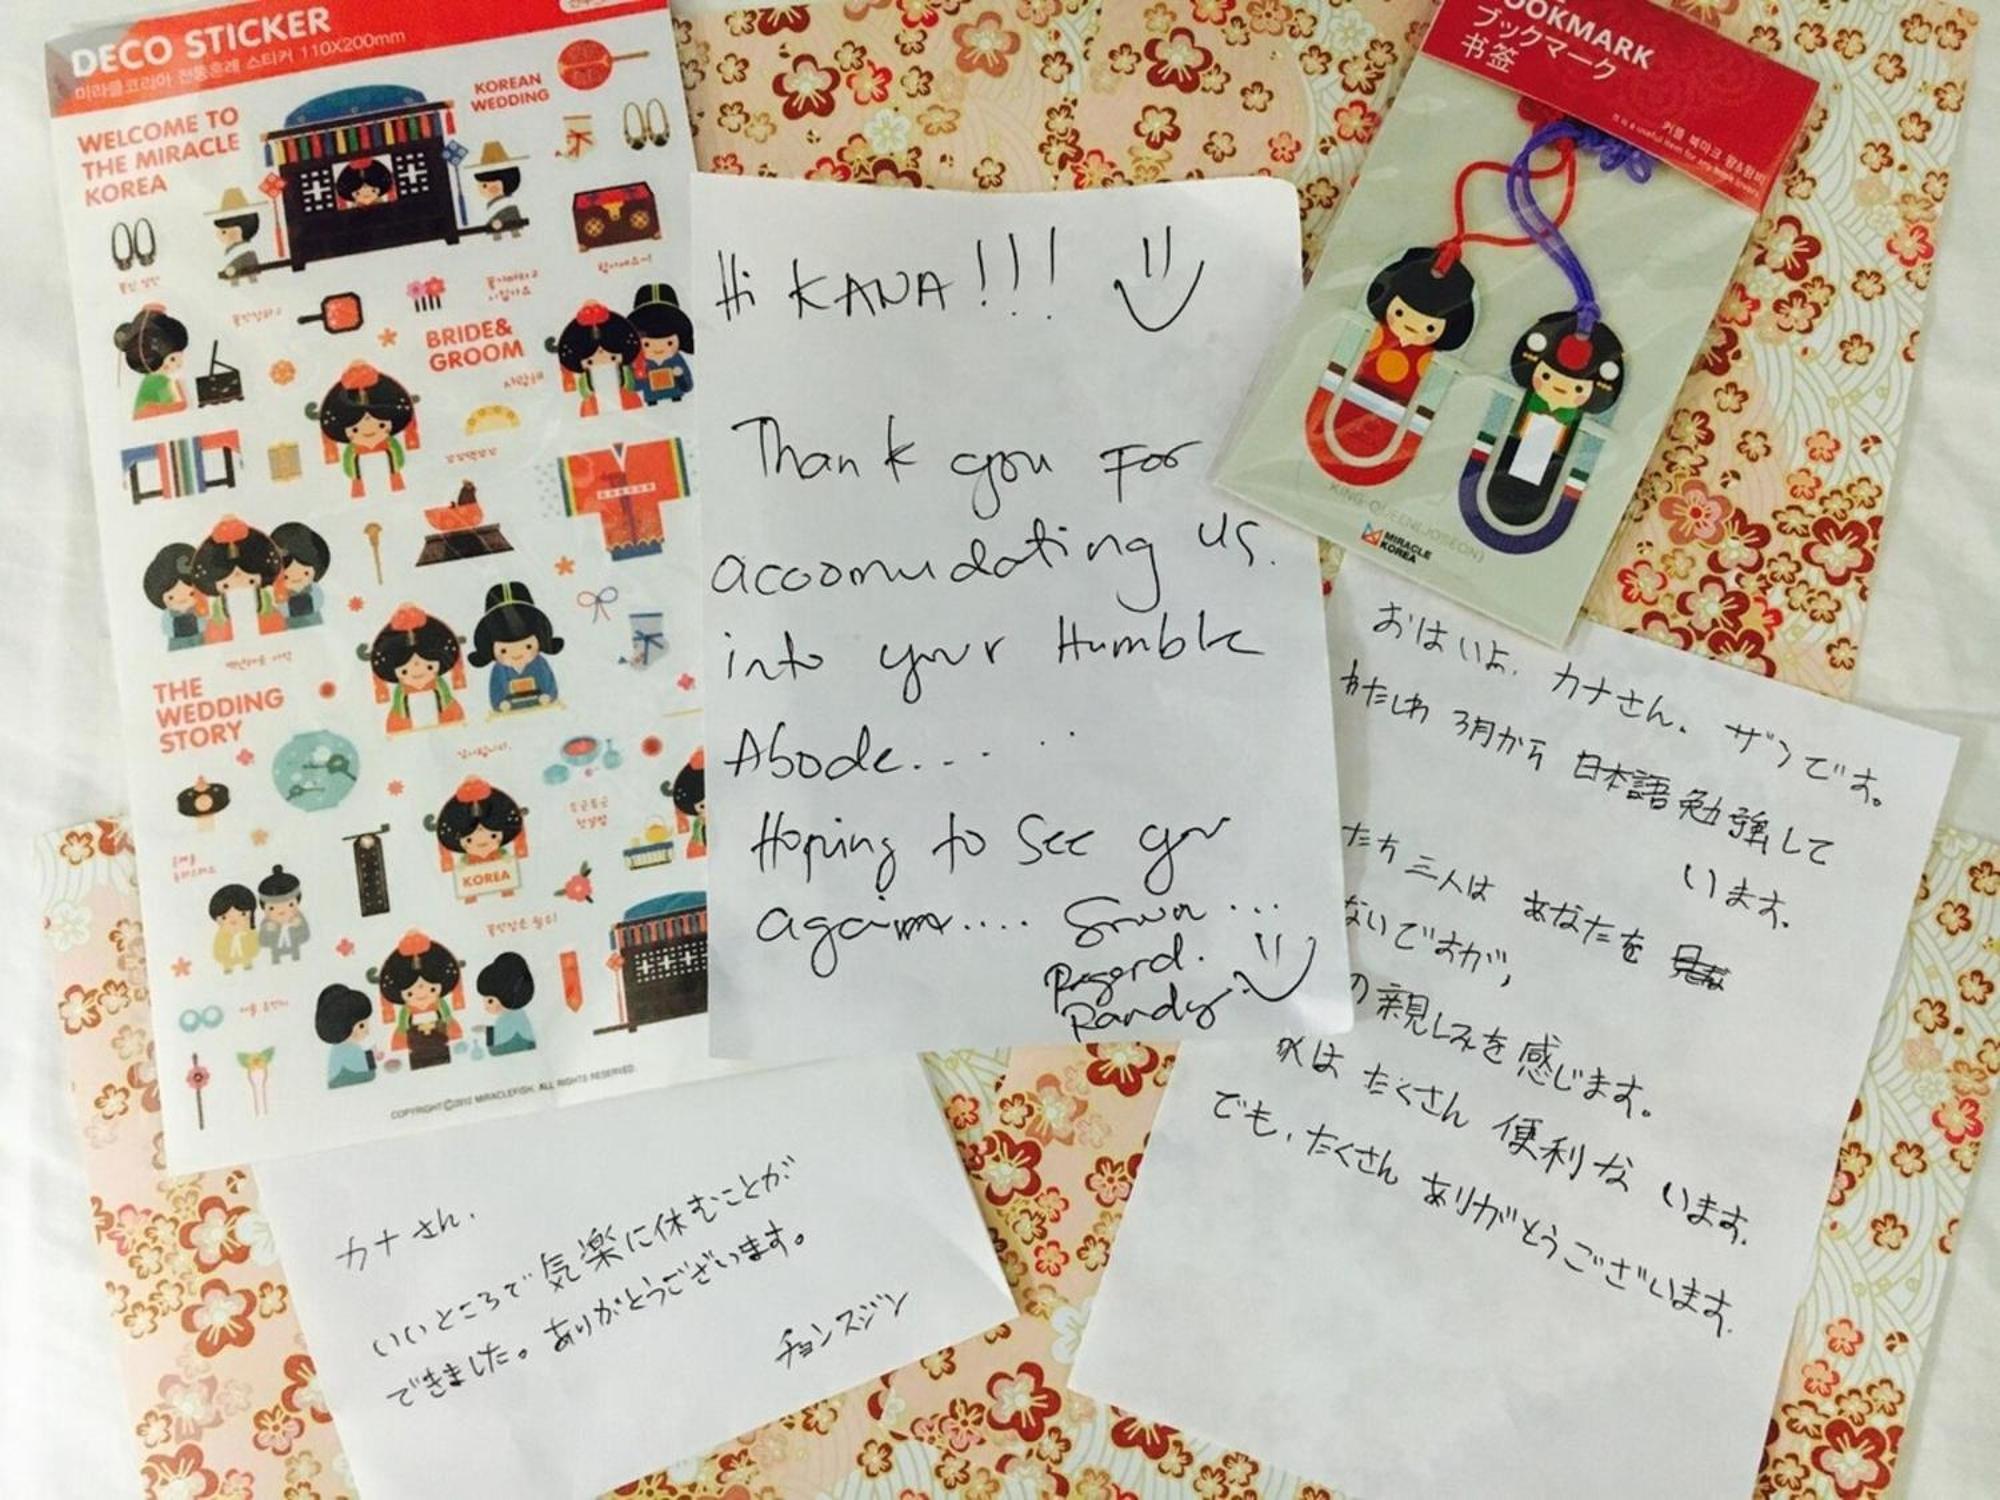 DECO STICKER
미라클코리아 전통혼례 스티커 110X200mm
WELCOME TO
THE MIRACLE
KOREA
KOREAN
WEDDING
BRIDE&
GROOM
THE
WEDDING
STORY
KOREA
COPYRIGHTⓒ2012 MIRACLEFISH. ALL RIGHTS RESERVED.
Hi KANA!!!
Thank you For
accoomudating us.
into your Humble
Abode.....
Hoping to See you
again.... Soon...
Regard.
Randy
OOKMARK
ブックマーク
书签
커플 북마크 왕&왕비
It is a useful item for any book lovers
KING·QUEEN(JOSEON)
MIRACLE
KOREA
おはいよ. カナさん. ザンです。
わたしわ 3月から 日本語 勉強して
います.
たち 三人は あなたを
ないですが,
の親しみを感じます。
は たくさん 便利な います.
でも, たくさん ありがとうございます.
カナさん.
いいところで 気楽に休むことが
できました。ありがとうございます。
チョンスジン